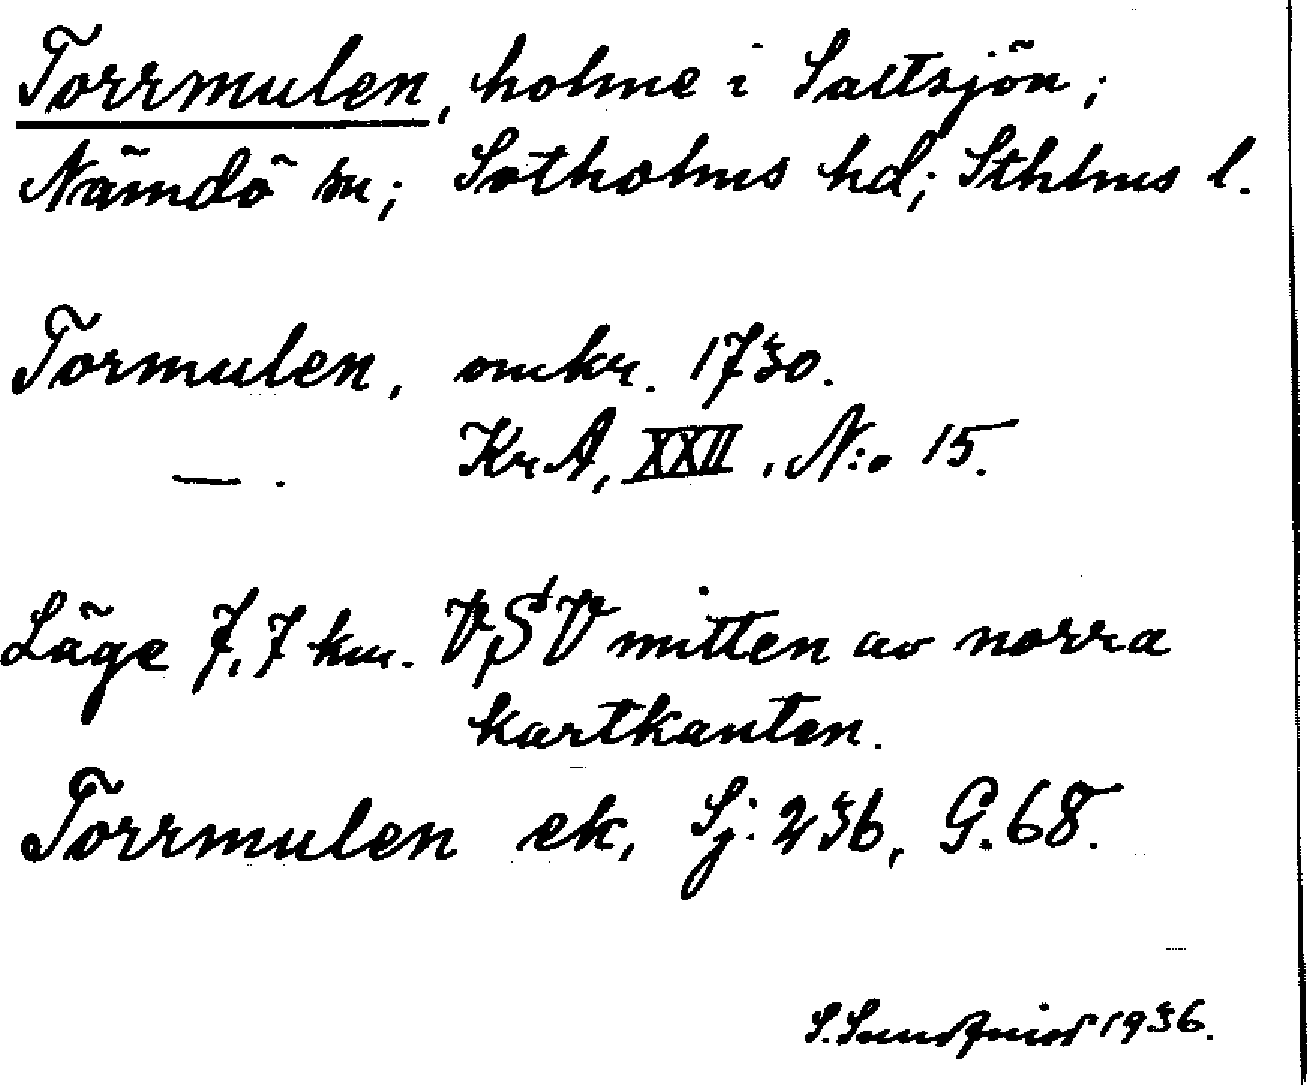 Torrmulen, holme i Saltsjön;
Nämdö sn; Sotholms hd; Sthlms l.
Tormulen, omkr. 1730.
— . KrA, XXII, N:o 15.
Läge 7,7 km. VSV mitten av norra
kartkanten.
Torrmulen ek, Sj: 236, G. 68.
S. Sundqvist 1936.